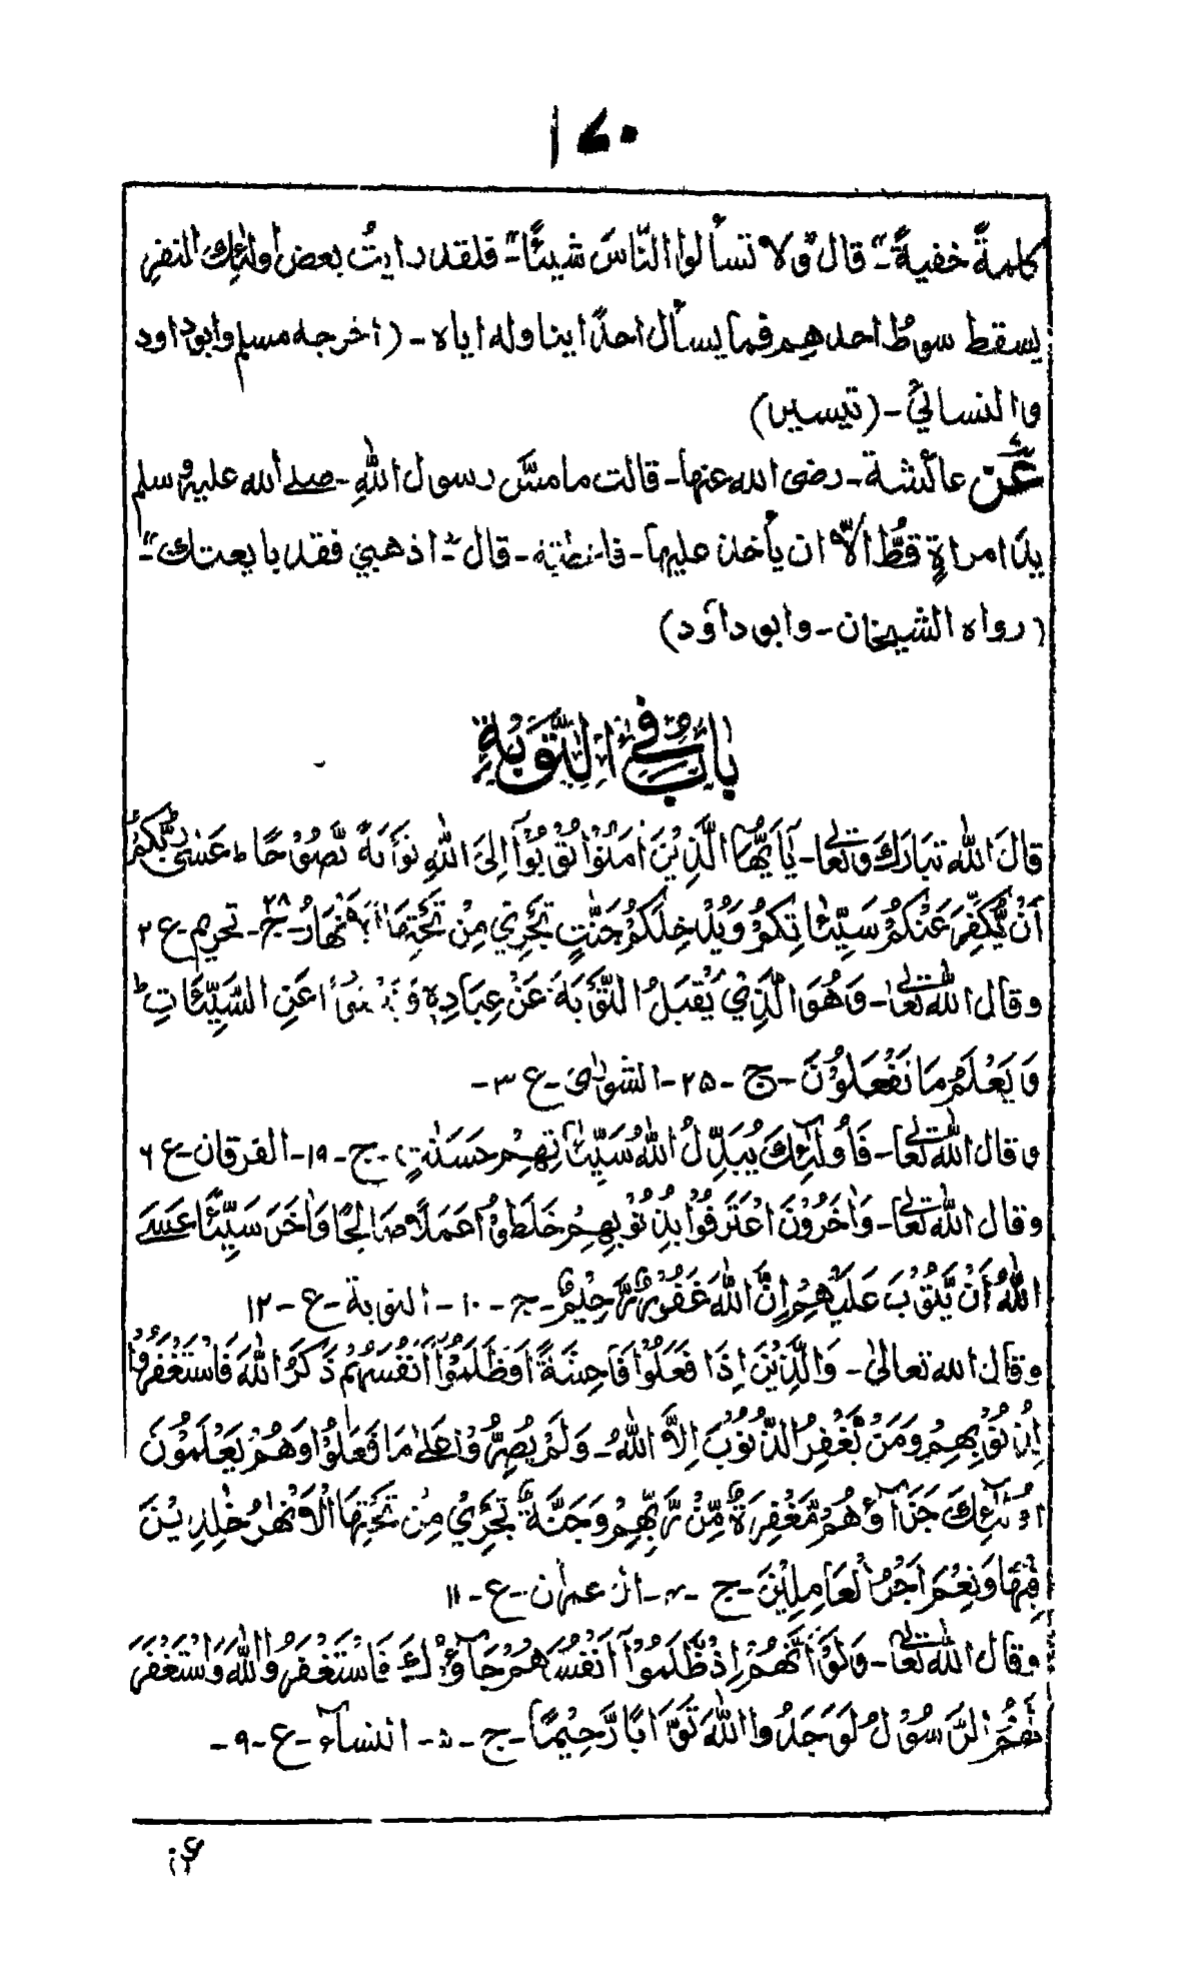 ١٧٠
كلمةً خفيةً"۔ قال "ولا تسألوا النّاسَ شيئًا"۔ فلقد رايتُ بعض اولٰئِك النفر
يسقط سوطُ احدهم فما يسأل احدًا يناوله اياه۔ (اخرجه مسلم وابوداود
والنسائي۔ (تيسير)
عَنْ عائشة۔ رضى الله عنها۔ قالت ما مسَّ رسول اللهِ۔ صلے الله عليه وسلم
يدَ امراةٍ قطُّ الّا ان يأخذ عليها۔ قال "اذهبي فقد بايعتك"۔
(رواه الشيخان۔ وابوداؤد)
بَابٌ فِي التَّوْبَةِ
قَالَ اللهُ تَبَارَكَ وَتَعَالٰى۔ يٰاَيُّهَا الَّذِيْنَ اٰمَنُوْا تُوْبُوْٓا اِلَى اللهِ تَوْبَةً نَّصُوْحًا ط عَسٰى رَبُّكُمْ
اَنْ يُّكَفِّرَ عَنْكُمْ سَيِّئَاتِكُمْ وَيُدْخِلَكُمْ جَنّٰتٍ تَجْرِيْ مِنْ تَحْتِهَا الْاَنْهَارُ۔ ج ٢٨۔ تحريم۔ ع ٢
وقال اللهُ تَعَالٰى۔ وَهُوَ الَّذِيْ يَقْبَلُ التَّوْبَةَ عَنْ عِبَادِهٖ وَيَعْفُوْا عَنِ السَّيِّئَاتِ ط
وَيَعْلَمُ مَا تَفْعَلُوْنَ۔ ج۔ ٢٥۔ الشورٰى۔ ع ٣۔
وقال اللهُ تَعَالٰى۔ فَاُولٰٓئِكَ يُبَدِّلُ اللهُ سَيِّئَاتِهِمْ حَسَنٰتٍ۔ ج۔ ١٩۔ الفرقان۔ ع ٦
وقال اللهُ تَعَالٰى۔ وَاٰخَرُوْنَ اعْتَرَفُوْا بِذُنُوْبِهِمْ خَلَطُوْا عَمَلًا صَالِحًا وَّاٰخَرَ سَيِّئًا عَسَے
اللهُ اَنْ يَّتُوْبَ عَلَيْهِمْ اِنَّ اللهَ غَفُوْرٌ رَّحِيْمٌ۔ ج۔ ١٠۔ التوبة۔ ع۔ ١٢
وقال الله تعالىٰ۔ وَالَّذِيْنَ اِذَا فَعَلُوْا فَاحِشَةً اَوْ ظَلَمُوْٓا اَنْفُسَهُمْ ذَكَرُوا اللهَ فَاسْتَغْفَرُوْا
لِذُنُوْبِهِمْ وَمَنْ يَّغْفِرُ الذُّنُوْبَ اِلَّا اللهُ۔ وَلَمْ يُصِرُّوْا عَلٰى مَا فَعَلُوْا وَهُمْ يَعْلَمُوْنَ
اُولٰٓئِكَ جَزَآؤُهُمْ مَّغْفِرَةٌ مِّنْ رَّبِّهِمْ وَجَنّٰتٌ تَجْرِيْ مِنْ تَحْتِهَا الْاَنْهٰرُ خٰلِدِيْنَ
فِيْهَا وَنِعْمَ اَجْرُ الْعَامِلِيْنَ۔ ج ۔ ٤۔ اٰل عمران۔ ع۔ ١١
وقال اللهُ تَعَالٰى۔ وَلَوْ اَنَّهُمْ اِذْ ظَّلَمُوْٓا اَنْفُسَهُمْ جَآؤُوْكَ فَاسْتَغْفَرُوا اللهَ وَاسْتَغْفَرَ
لَهُمُ الرَّسُوْلُ لَوَجَدُوا اللهَ تَوَّابًا رَّحِيْمًا۔ ج۔ ٥۔ النسآء۔ ع۔ ٩۔